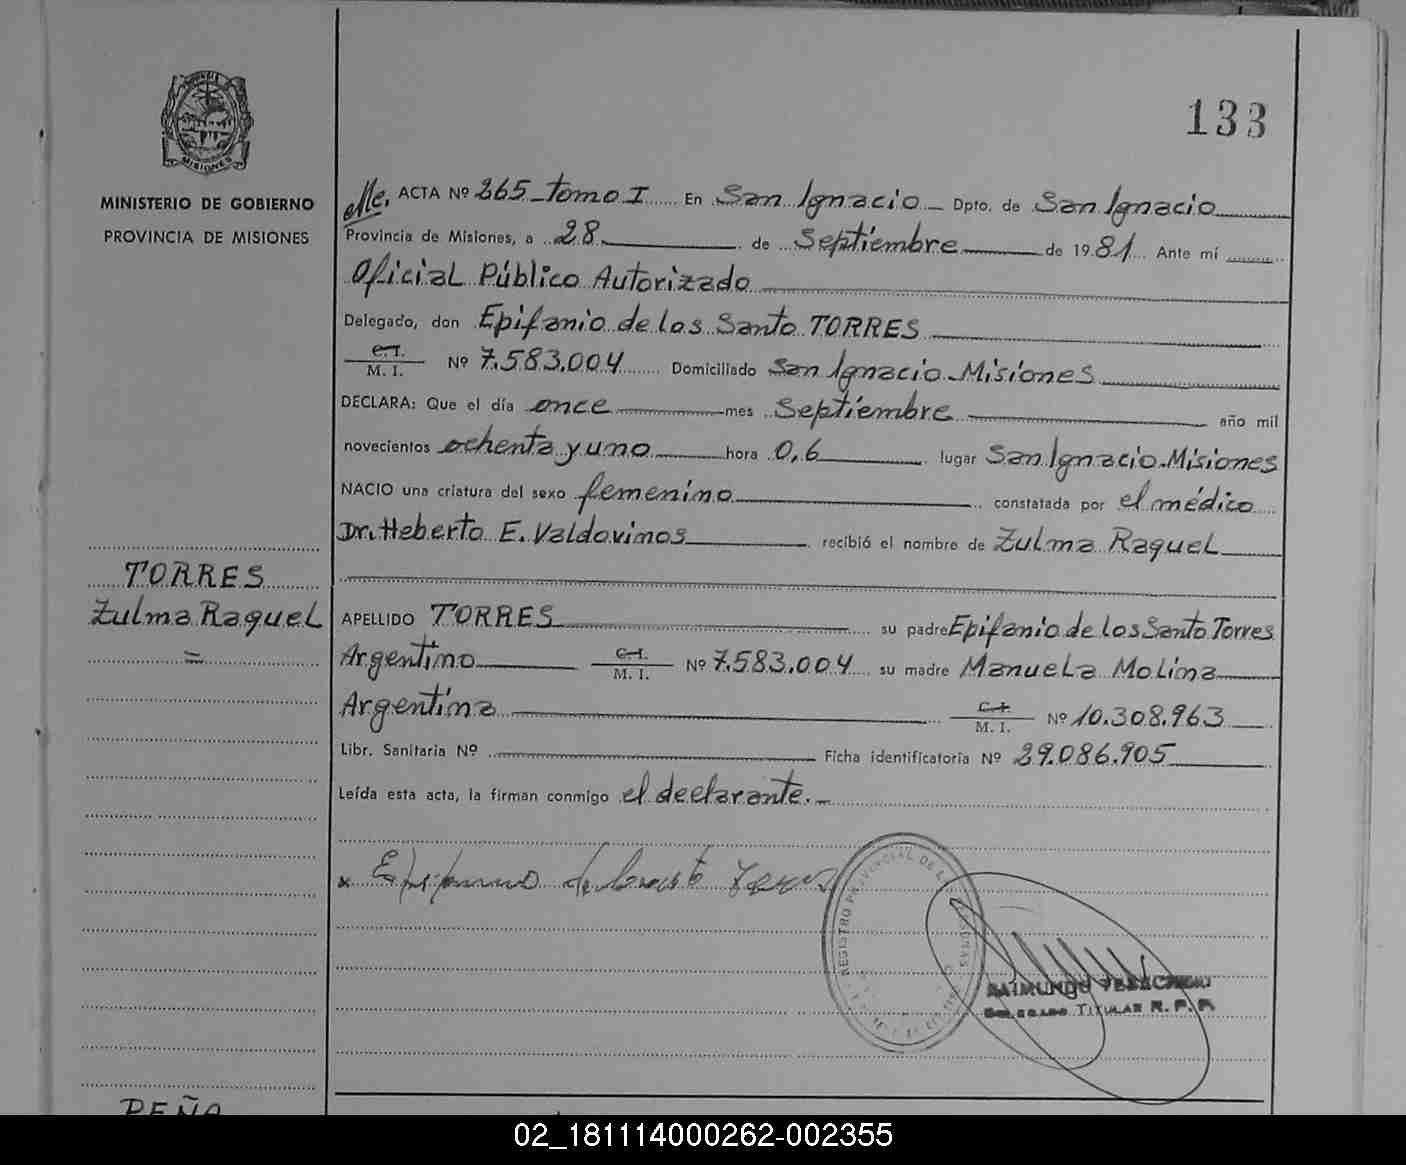 133
PROVINCIA
MISIONES
MINISTERIO DE GOBIERNO
PROVINCIA DE MISIONES
ACTA Nº 265 - tomo I En San Ignacio Dpto. de San Ignacio
Provincia de Misiones, a 28 de Septiembre de 1981. Ante mí
Oficial Público Autorizado
Delegado, don Epifanio de los Santo TORRES
C.I.
M. I. Nº 7.583.004 Domiciliado San Ignacio - Misiones
DECLARA: Que el día once mes Septiembre año mil
novecientos ochenta y uno hora 0,6 lugar San Ignacio - Misiones
NACIO una criatura del sexo femenino constatada por el médico
Dr. Heberto E. Valdovinos recibió el nombre de Zulma Raquel
TORRES
Zulma Raquel
=
APELLIDO TORRES su padre Epifanio de los Santo Torres
Argentino C.I. M. I. Nº 7.583.004 su madre Manuela Molina
Argentina C.I. M. I. Nº 10.308.963
Libr. Sanitaria Nº Ficha identificatoria Nº 29.086.905
Leída esta acta, la firman conmigo el declarante.-
x
REGISTRO PROVINCIAL DE LAS PERSONAS
RAIMUNDO
DELEGADO TITULAR R. P. P.
PEÑA
02_181114000262-002355